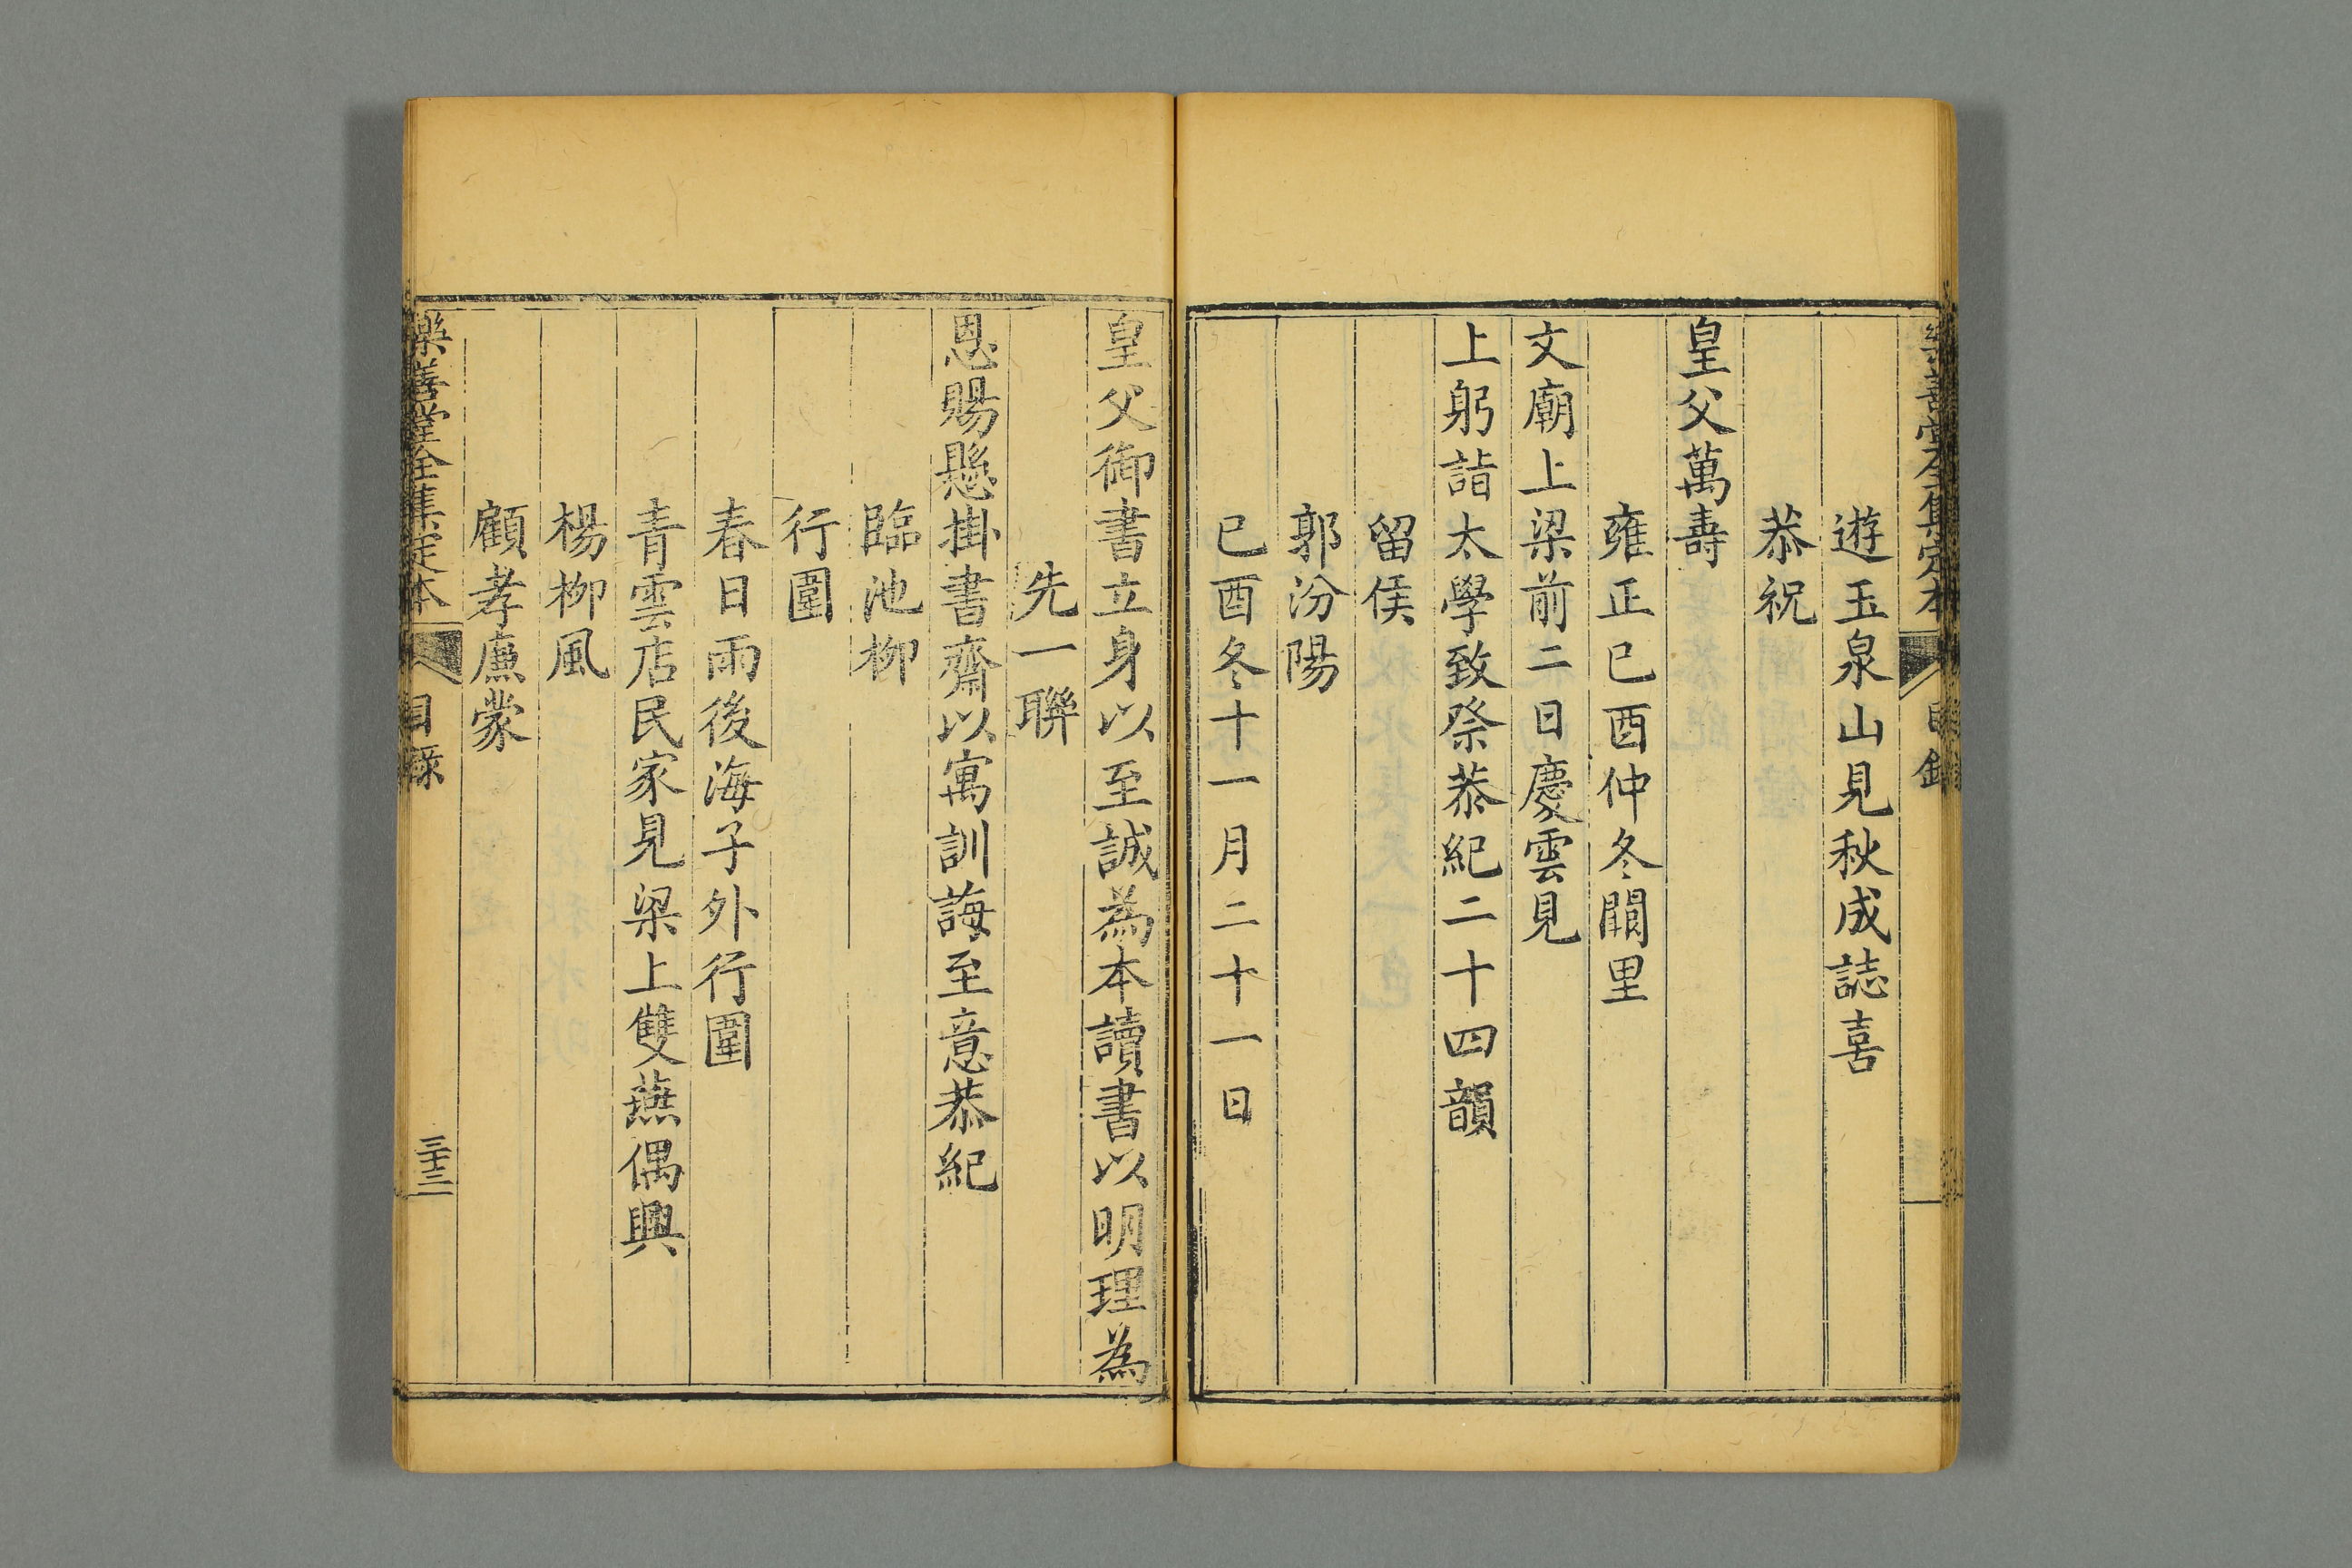 樂善堂全集定本 目錄
遊玉泉山見秋成誌喜
恭祝
皇父萬壽
雍正己酉仲冬闕里
文廟上梁前二日慶雲見
上躬詣太學致祭恭紀二十四韻
留侯
郭汾陽
己酉冬十一月二十一日
皇父御書立身以至誠為本讀書以明理為
先一聯
恩賜懸掛書齋以寓訓誨至意恭紀
臨池柳
行圍
春日雨後海子外行圍
青雲店民家見梁上雙燕偶興
楊柳風
顧孝廉蒙
樂善堂全集定本 目錄 三十三